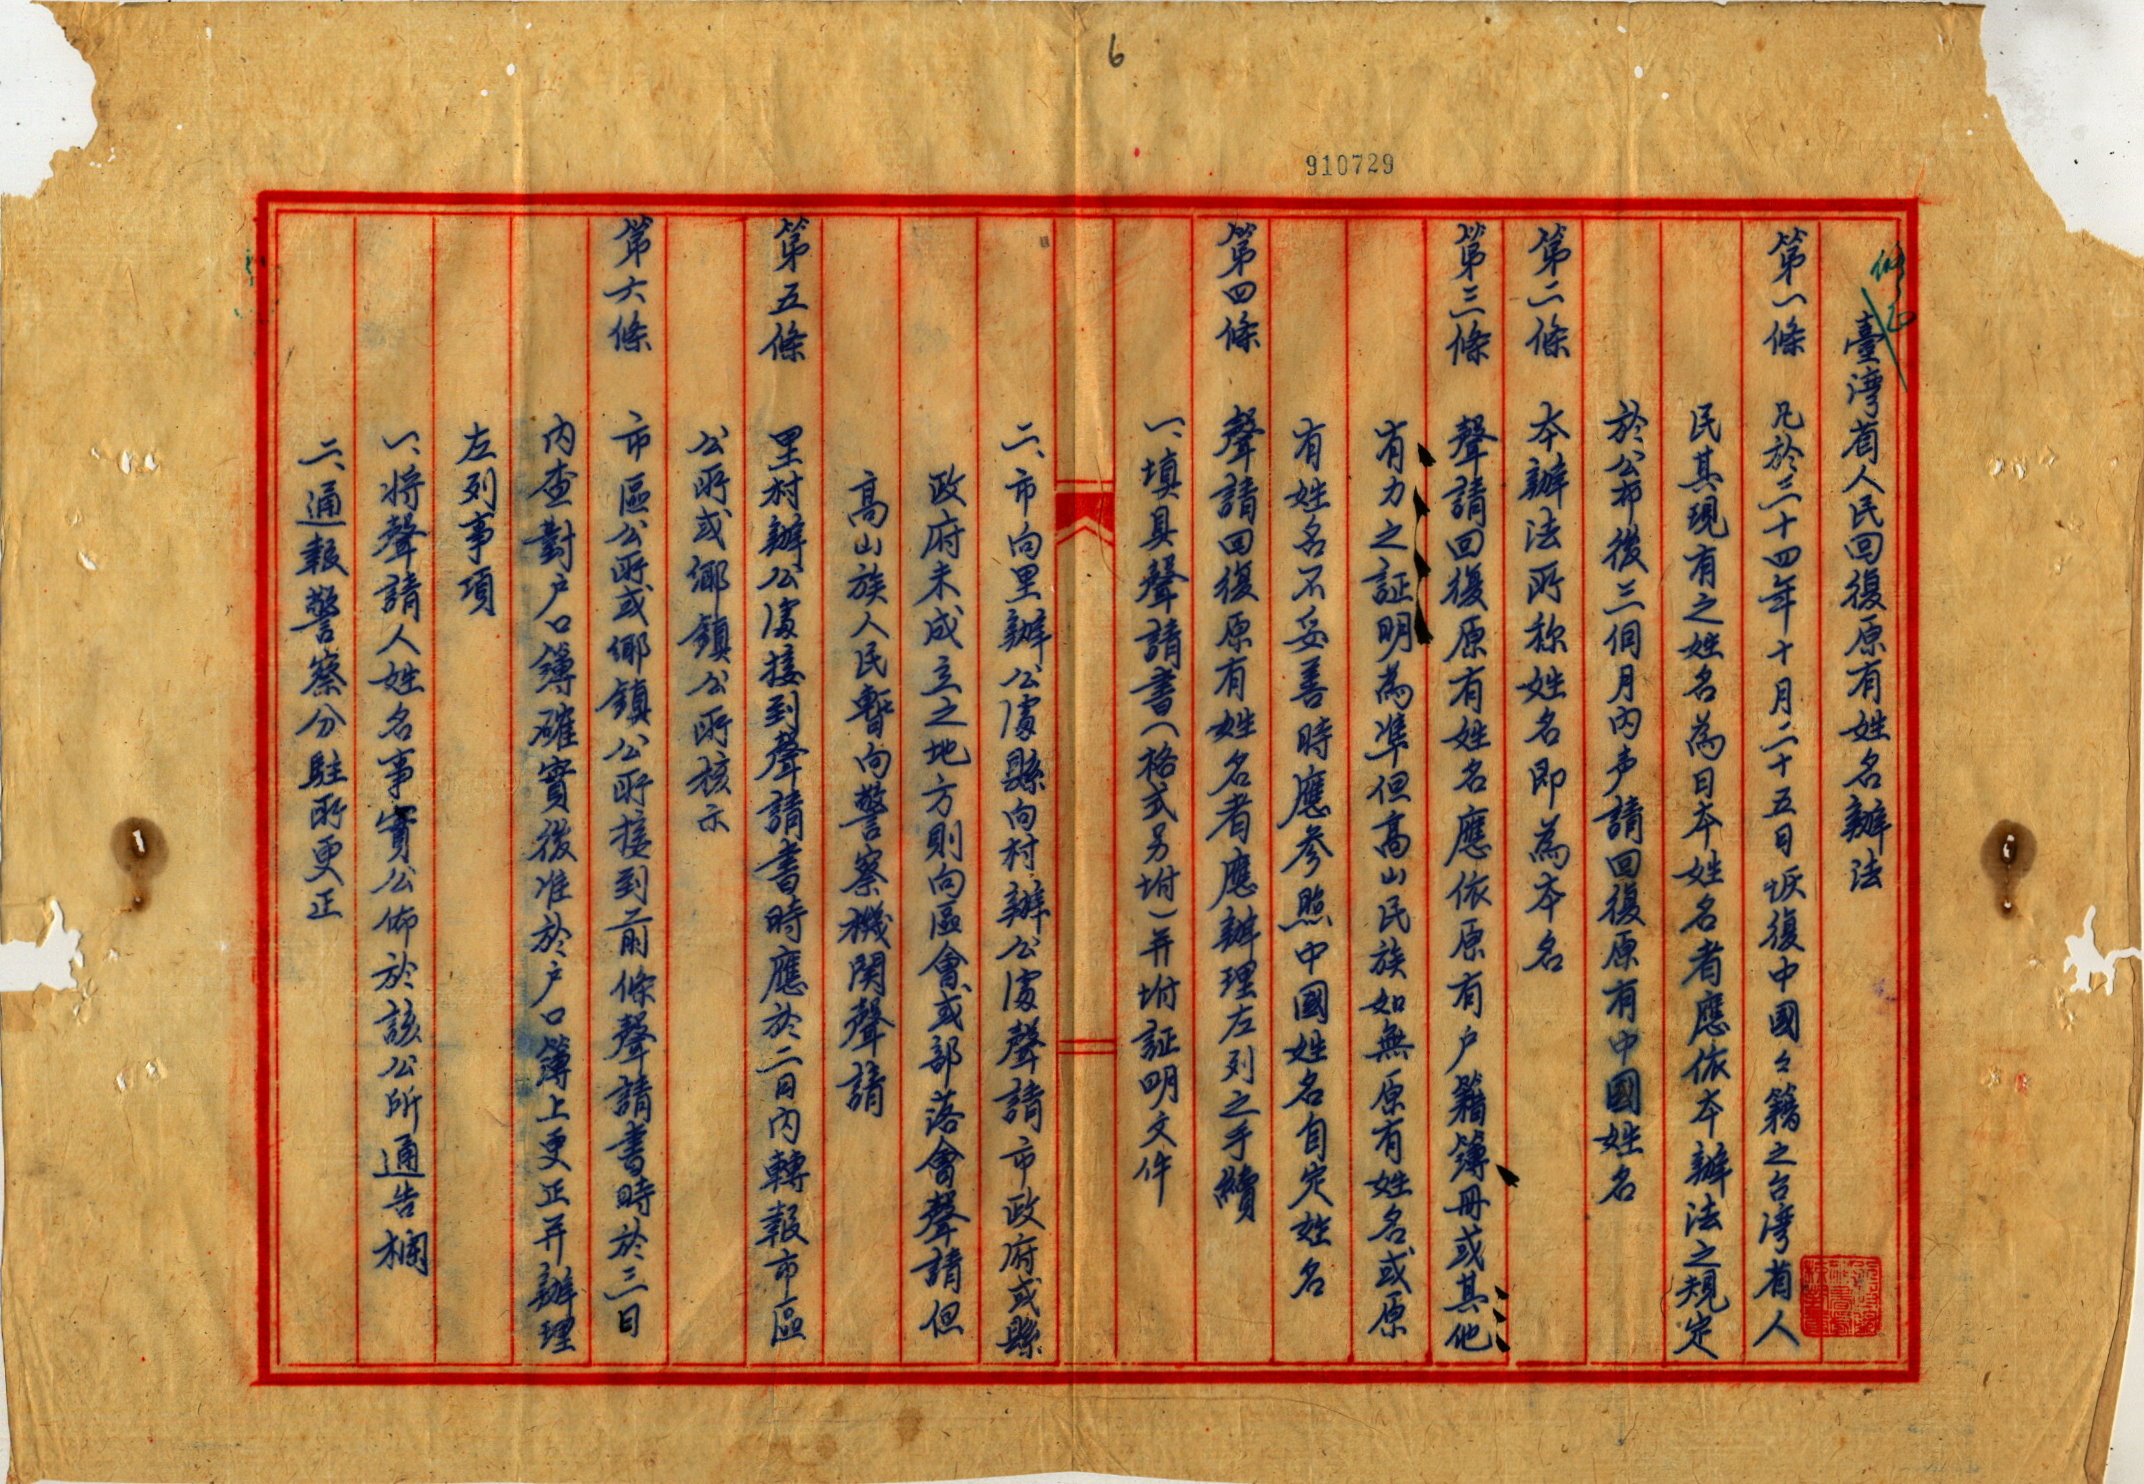 6
910729
修正
臺灣省人民回復原有姓名辦法
第一條 凡於三十四年十月二十五日恢復中國々籍之台灣省人
民其現有之姓名為日本姓名者應依本辦法之規定
於公布後三個月內声請回復原有中國姓名
第二條 本辦法所称姓名即為本名
第三條 聲請回復原有姓名應依原有户籍簿冊或其他
有力之証明為準但高山民族如無原有姓名或原
有姓名不妥善時應参照中國姓名自定姓名
第四條 聲請回復原有姓名者應辦理左列之手續
一、填具聲請書(格式另坿)并坿証明文件
二、市向里辦公處縣向村辦公處聲請市政府或縣
政府未成立之地方則向區會或部落會聲請但
高山族人民暫向警察機関聲請
第五條 里村辦公處接到聲請書時應於二日內轉報市區
公所或鄉鎮公所核示
第六條 市區公所或鄉鎮公所接到前條聲請書時於三日
內查對户口簿確實後准於户口簿上更正并辦理
左列事項
一、將聲請人姓名事實公佈於該公所通告欄
二、通報警察分駐所更正